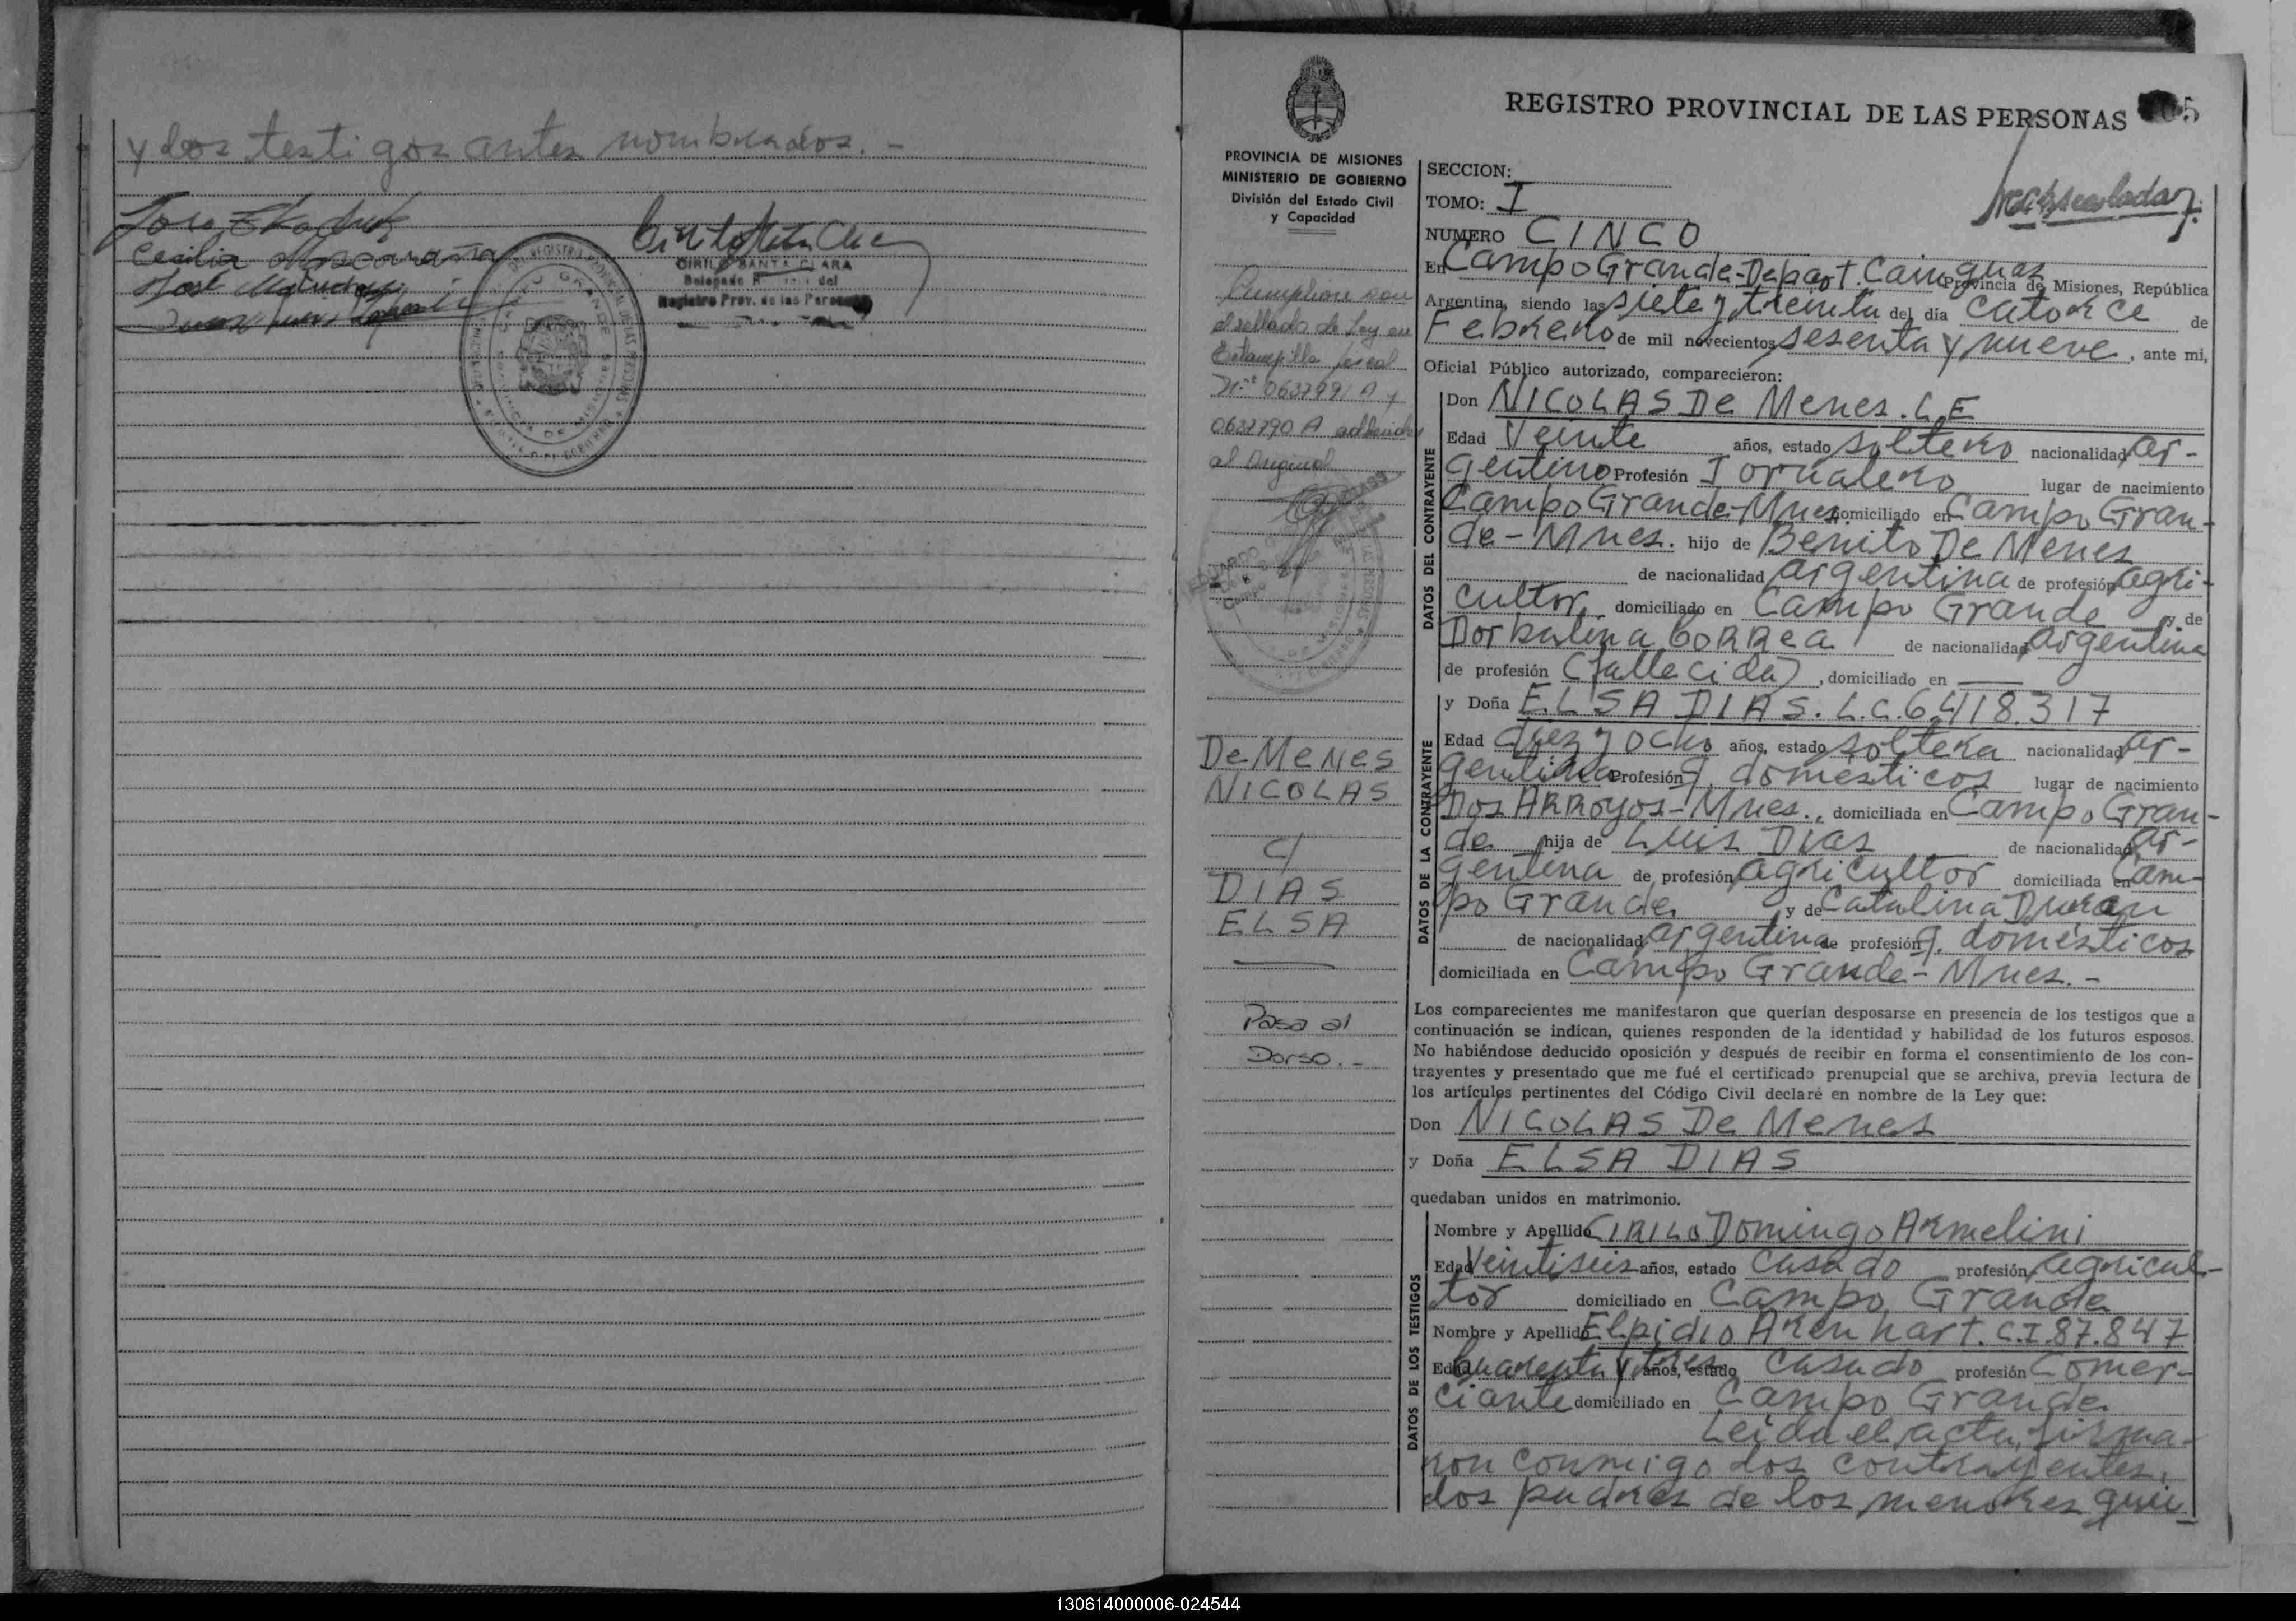 y los testigos antes nombrados. -
CIRILO SANTA CLARA
Registro Prov. de las Personas
REGISTRO PROVINCIAL DE LAS PERSONAS
5
PROVINCIA DE MISIONES
MINISTERIO DE GOBIERNO
División del Estado Civil
y Capacidad
SECCION:
TOMO: I
NUMERO CINCO
En Campo Grande-Depart. Cainguas Provincia de Misiones, República
Argentina, siendo las siete y treinta del día catorce de
Febrero de mil novecientos sesenta y nueve, ante mi,
Oficial Público autorizado, comparecieron:
DATOS DEL CONTRAYENTE
Don NICOLAS De Menes. L.E
Edad Veinte años, estado soltero nacionalidad ar-
gentino Profesión Jornalero lugar de nacimiento
Campo Grande-Mnes. domiciliado en Campo Gran-
de-Mnes. hijo de Benito De Menes
de nacionalidad argentina de profesión agri-
cultor domiciliado en Campo Grande y de
Dorbalina Correa de nacionalidad argentina
de profesión (fallecida), domiciliado en —
DATOS DE LA CONTRAYENTE
y Doña ELSA DIAS. L.C. 6.418.317
Edad diez y ocho años, estado soltera nacionalidad ar-
gentina Profesión q. domésticos lugar de nacimiento
Dos Arroyos-Mnes., domiciliada en Campo Gran-
de hija de Luis Dias de nacionalidad ar-
gentina de profesión agricultor domiciliada en Cam-
po Grande y de Catalina Duran
de nacionalidad argentina de profesión q. domésticos
domiciliada en Campo Grande-Mnes.-
Los comparecientes me manifestaron que querían desposarse en presencia de los testigos que a
continuación se indican, quienes responden de la identidad y habilidad de los futuros esposos.
No habiéndose deducido oposición y después de recibir en forma el consentimiento de los con-
trayentes y presentado que me fué el certificado prenupcial que se archiva, previa lectura de
los artículos pertinentes del Código Civil declaré en nombre de la Ley que:
Don NICOLAS De Menes
y Doña ELSA DIAS
quedaban unidos en matrimonio.
DATOS DE LOS TESTIGOS
Nombre y Apellido CIRILO Domingo Armelini
Edad Veintiseis años, estado casado profesión agricul-
tor domiciliado en Campo Grande
Nombre y Apellido Elpidio Arenhart. C.I. 87.847
Edad Cuarenta y tres años, estado casado profesión Comer-
ciante domiciliado en Campo Grande
Leida el acta, firma-
ron conmigo los contrayentes,
los padres de los menores quie-
el sellado de Ley en
Estampilla fiscal
0637790 A
al Original
De Menes
NICOLAS
c/
DIAS
ELSA
Pasa al
Dorso.-
130614000006-024544